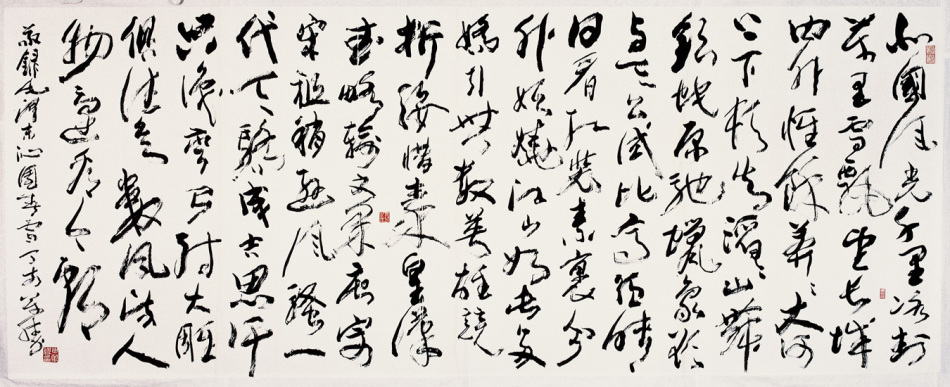 北國風光千里冰封
萬里雪飄望長城
内外惟餘莽莽大河
上下頓失滔滔山舞
銀蛇原馳蠟象欲
與天公試比高須晴
日看紅裝素裹分
外妖嬈江山如此多
嬌引無數英雄競
折腰惜秦皇漢
武略輸文采唐宗
宋祖稍遜風騷一
代天驕成吉思汗
只識彎弓射大雕
俱往矣數風流人
物還看今朝
敬錄毛澤東沁園春雪丁亥